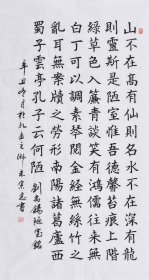 山不在高有仙則名水不在深有龍
則靈斯是陋室惟吾德馨苔痕上階
綠草色入簾青談笑有鴻儒往來無
白丁可以調素琴閱金經無絲竹之
亂耳無案牘之勞形南陽諸葛廬西
蜀子雲亭孔子云何陋 劉禹錫陋室銘
辛丑